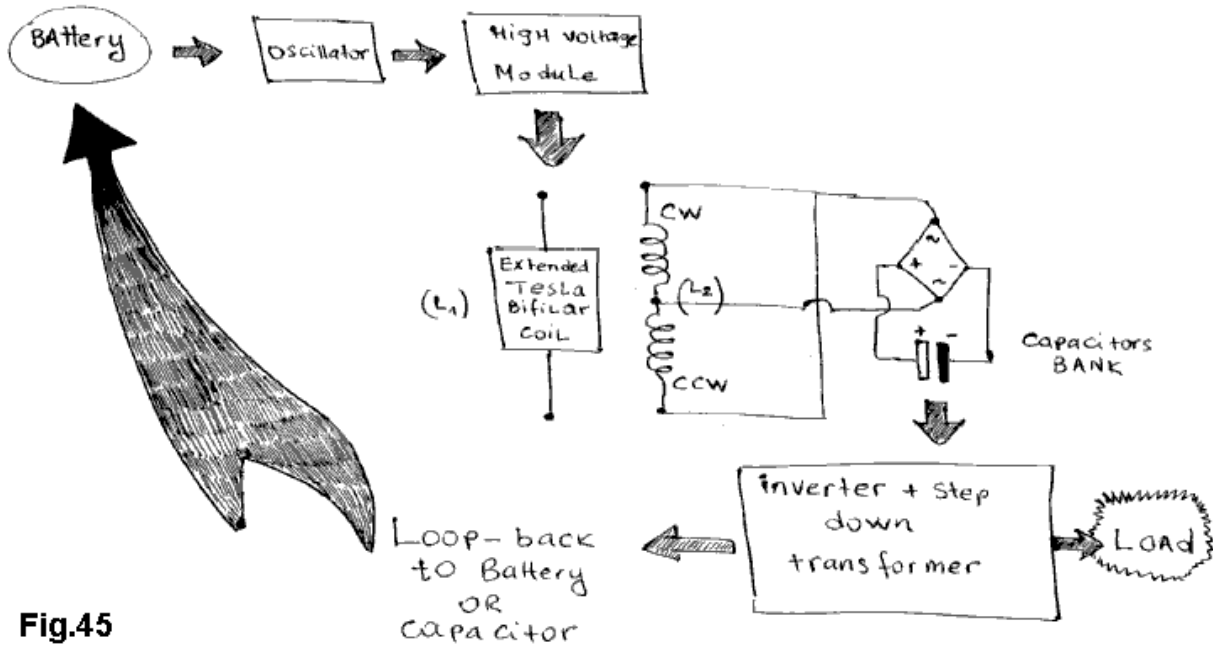 BAttery
Oscillator
High voltage
Module
CW
(L2)
CCW
(L1)
Extended
Tesla
Bifilar
Coil
~
+ -
~
+ -
Capacitors
BANK
inverter + step
down
transformer
LOAd
Loop-back
to Battery
OR
Capacitor
Fig.45